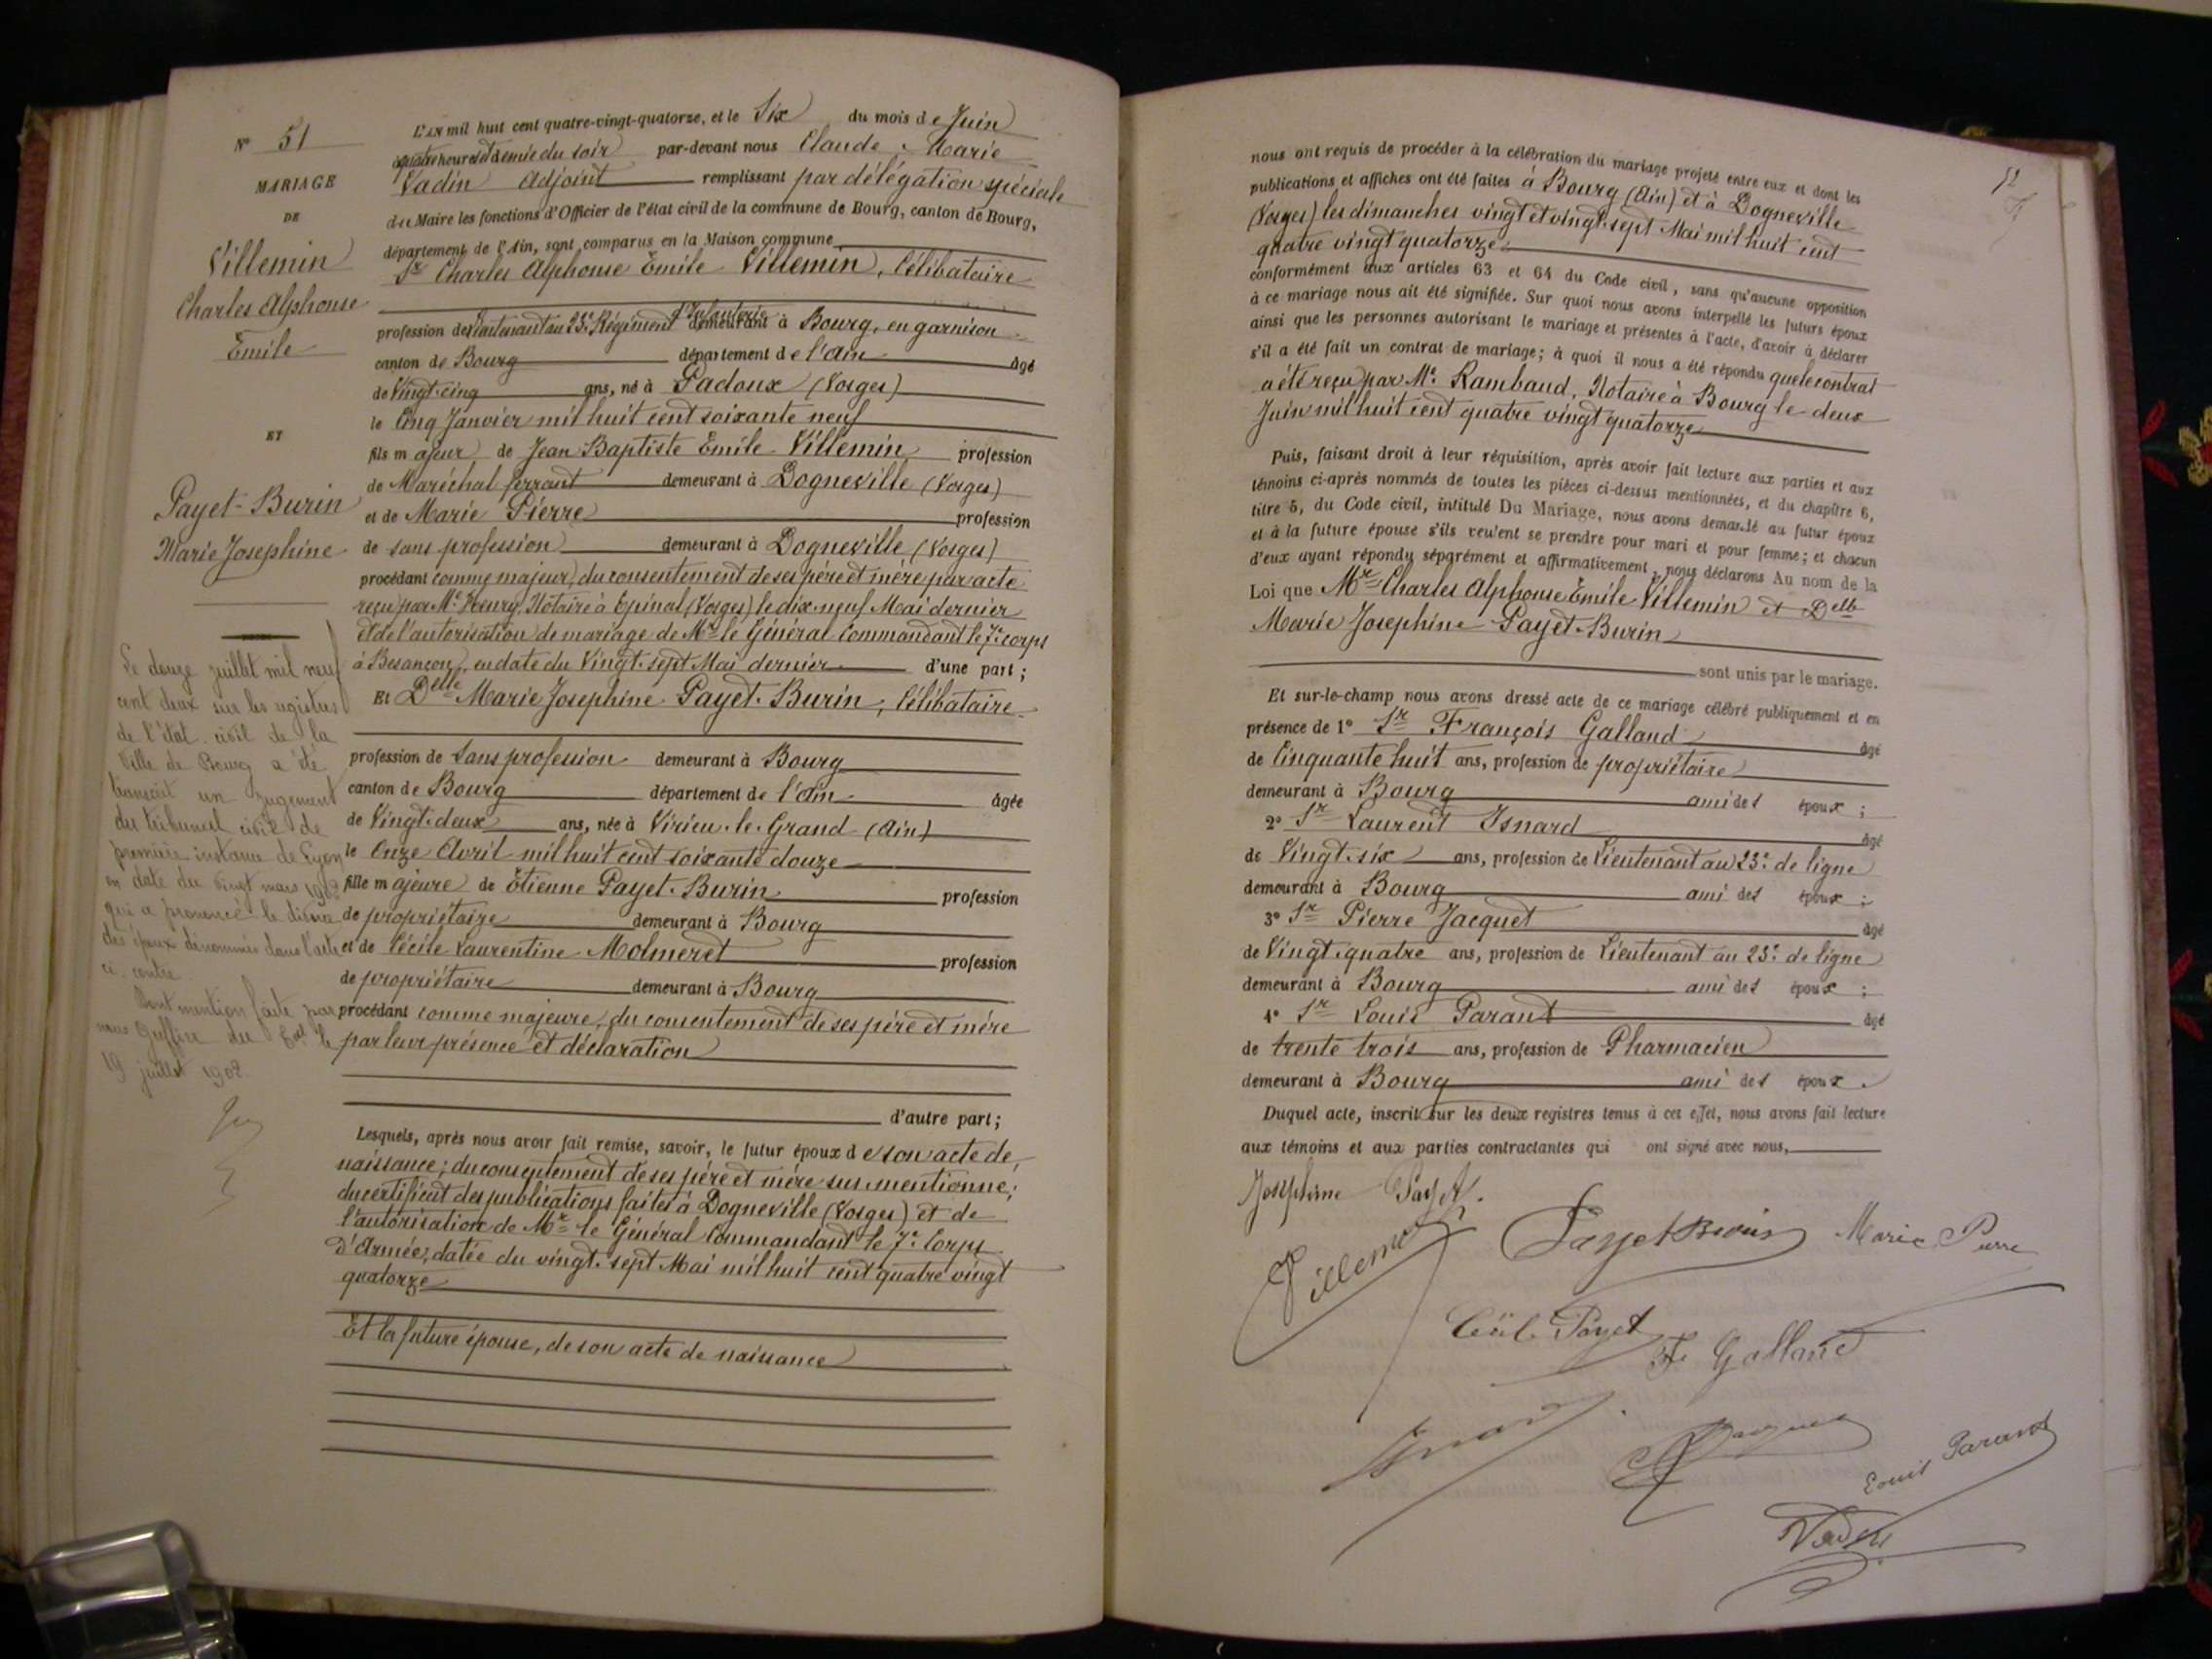 N° 51
MARIAGE
DE
Villemin
Charles Alphonse
Emile
ET
Payet-Burin
Marie Josephine
Le douze juillet mil neuf
cent deux sur les registres
de l'état civil de la
Ville de Bourg a été
transcrit un jugement
du tribunal civil de
première instance de Lyon
en date du vingt mars 1902
qui a prononcé le divorce
des époux dénommés dans l'acte
ci-contre.
Dont mention faite par
nous Greffier du le
19 juillet 1902.
L'AN mil huit cent quatre-vingt-quatorze, et le Six du mois de Juin
à quatre heures et demie du soir par-devant nous Claude, Marie
Vadin Adjoint remplissant par délégation spéciale
du Maire les fonctions d'Officier de l'état civil de la commune de Bourg, canton de Bourg,
département de l'Ain, sont comparus en la Maison commune
Sr Charles Alphonse Emile Villemin, Célibataire
d'Infanterie
profession de Lieutenant au 23e Régiment demeurant à Bourg, en garnison
canton de Bourg département de l'Ain âgé
de Vingt-cinq ans, né à Padoux (Vosges)
le Cinq Janvier mil huit cent soixante neuf
fils majeur de Jean Baptiste Emile Villemin profession
de Maréchal ferrant demeurant à Dogneville (Vosges)
et de Marie Pierre profession
de sans profession demeurant à Dogneville (Vosges)
procédant comme majeur, du consentement de ses père et mère par acte
reçu par Me Henry, Notaire à Epinal (Vosges) le dix-neuf Mai dernier
et de l'autorisation de mariage de Mr le Général Commandant le 7e corps
à Besançon, en date du Vingt-sept Mai dernier d'une part;
Et Delle Marie Josephine Payet-Burin, Célibataire
profession de Sans profession demeurant à Bourg
canton de Bourg département de l'Ain âgée
de Vingt-deux ans, née à Virieu-le-Grand (Ain)
le Onze Avril mil huit cent soixante douze
fille majeure de Etienne Payet-Burin profession
de propriétaire demeurant à Bourg
et de Cécile Laurentine Molmeret profession
de propriétaire demeurant à Bourg
procédant comme majeure, du consentement de ses père et mère
par leur présence et déclaration
d'autre part;
Lesquels, après nous avoir fait remise, savoir, le futur époux de son acte de
naissance; du consentement de ses père et mère sus mentionné;
du certificat des publications faites à Dogneville (Vosges) et de
l'autorisation de Mr le Général Commandant le 7e Corps
d'Armée, datée du vingt-sept Mai mil huit cent quatre vingt
quatorze
Et la future épouse, de son acte de naissance
52
nous ont requis de procéder à la célébration du mariage projeté entre eux et dont les
publications et affiches ont été faites à Bourg (Ain) et à Dogneville
(Vosges) les dimanches vingt et vingt-sept Mai mil huit cent
quatre vingt quatorze
conformément aux articles 63 et 64 du Code civil, sans qu'aucune opposition
à ce mariage nous ait été signifiée. Sur quoi nous avons interpellé les futurs époux
ainsi que les personnes autorisant le mariage et présentes à l'acte, d'avoir à déclarer
s'il a été fait un contrat de mariage; à quoi il nous a été répondu que le contrat
a été reçu par Me Rambaud, Notaire à Bourg le deux
Juin mil huit cent quatre vingt quatorze
Puis, faisant droit à leur réquisition, après avoir fait lecture aux parties et aux
témoins ci-après nommés de toutes les pièces ci-dessus mentionnées, et du chapitre 6,
titre 5, du Code civil, intitulé Du Mariage, nous avons demandé au futur époux
et à la future épouse s'ils veulent se prendre pour mari et pour femme; et chacun
d'eux ayant répondu séparément et affirmativement, nous déclarons Au nom de la
Loi que Mr Charles Alphonse Emile Villemin et Delle
Marie Josephine Payet-Burin
sont unis par le mariage.
Et sur-le-champ nous avons dressé acte de ce mariage célébré publiquement et en
présence de 1° Sr François Galland âgé
de Cinquante huit ans, profession de propriétaire
demeurant à Bourg ami des époux;
2° Sr Laurent Isnard âgé
de Vingt-six ans, profession de Lieutenant au 23e de ligne
demeurant à Bourg ami des époux;
3° Sr Pierre Jacquet âgé
de Vingt-quatre ans, profession de Lieutenant au 23e de ligne
demeurant à Bourg ami des époux;
4° Sr Louis Parant âgé
de trente trois ans, profession de Pharmacien
demeurant à Bourg ami des époux.
Duquel acte, inscrit sur les deux registres tenus à cet effet, nous avons fait lecture
aux témoins et aux parties contractantes qui ont signé avec nous,
Joséphine Payet.
Villemin Payet Burin Marie Pierre
Cécile Payet
F. Galland
Isnard Jacquet Louis Parant
Vadin